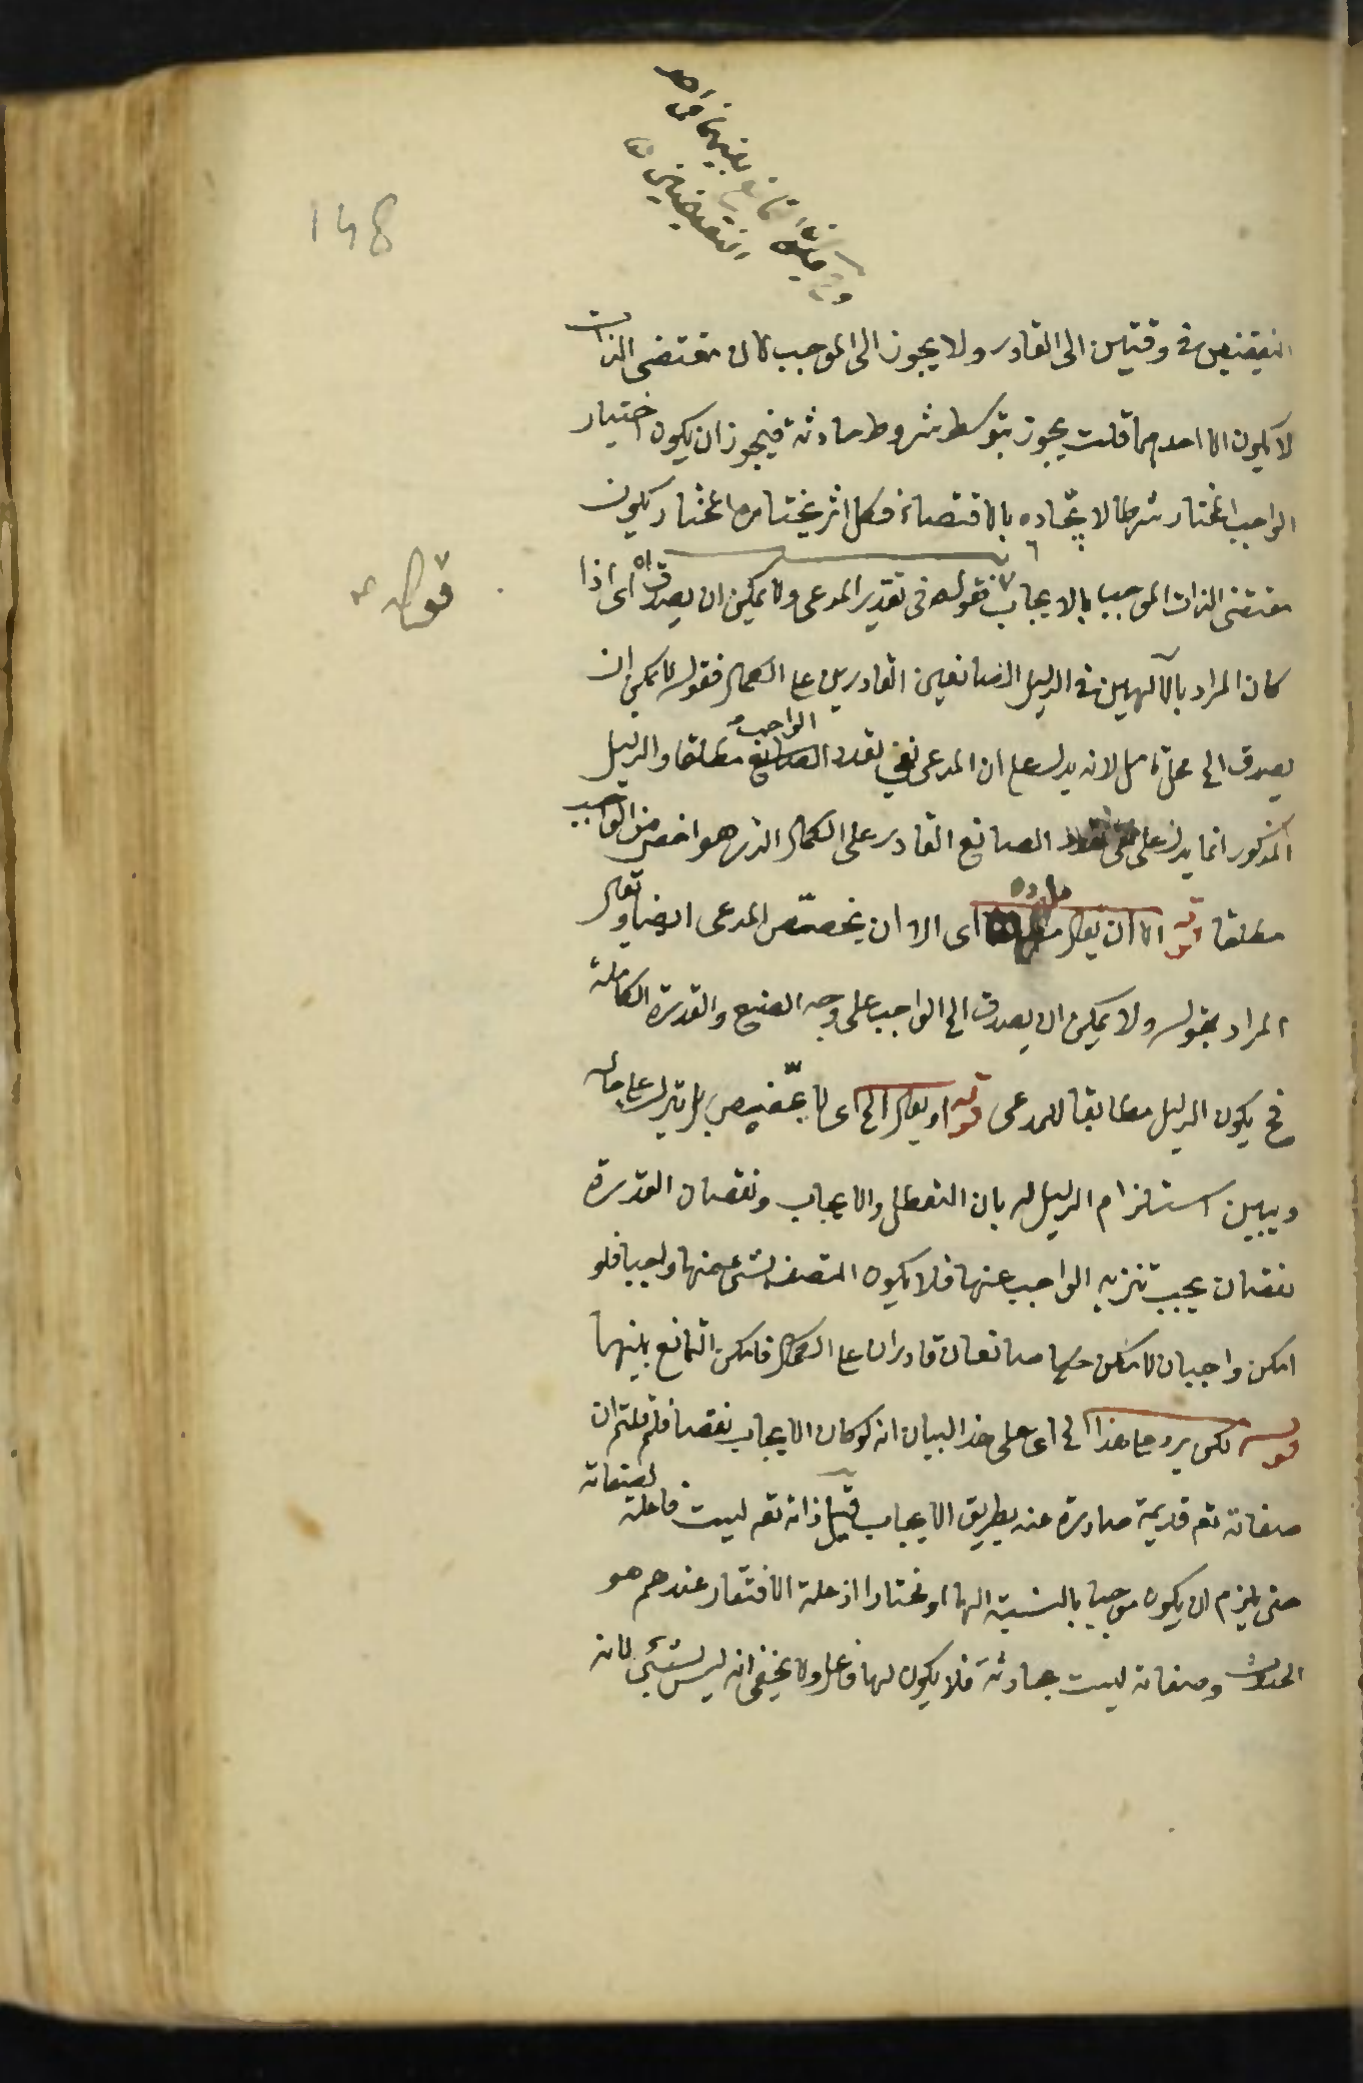 148
بينهما في احد
النقيضين
النقيضين في وقتين الى القادر ولا يجوز الى الموجب لان مقتضى الذات
لا يكون الا احدهما قلت يجوز بتوسط شروط حادثة فيجوز ان يكون اختيار
الواجب المختار شرطا لايجاده بالاقتضاء فكل اثر يختاره المختار يكون
مقتضى الذات الموجب بالايجاب فقوله في تقدير المدعى ولا يمكن ان يصدق اه اى اذا
قوله صح
كان المراد بالآلهين في الدليل الصانعين القادرين على الكمال فقوله لا يمكن ان
يصدق الخ محل تأمل لانه يدل على ان المدعى نفي تعدد الواجب مطلقا والدليل
المذكور انما يدل على نفى تعدد الصانع القادر على الكمال الذي هو اخص من الواجب
مطلقا قوله الا ان يقال اى الا ان يخصص المدعى ايضا ويقال
المراد بقوله ولا يمكن ان يصدق الخ الواجب على وجه الصنع والقدرة الكاملة
فح يكون الدليل مطابقا للمدعى قوله او يقال الخ اى لا تخصيص بل يترك على حاله
ويبين استلزام الدليل له بان التعطل والايجاب ونقصان القدرة
نقصان يجب تنزيه الواجب عنها فلا يكون المتصف بشئ منها واجبا فلو
امكن واجبان لامكن صانعان قادران على الكمال فامكن التمانع بينهما
قوله لكن يرد على هذا الخ اى على هذا البيان انه لو كان الايجاب نقصا فلم قلتم ان
صفاته تع قديمة صادرة عنه بطريق الايجاب قيل ذاته تع ليست فاعلة لصفاته
حتى يلزم ان يكون موجبا بالنسبة اليها او مختارا اذ علة الافتقار عندهم هو
الحدوث وصفاته ليست بحادثة فلا يكون لها فاعل ولا يخفى انه ليس بشئ لانه